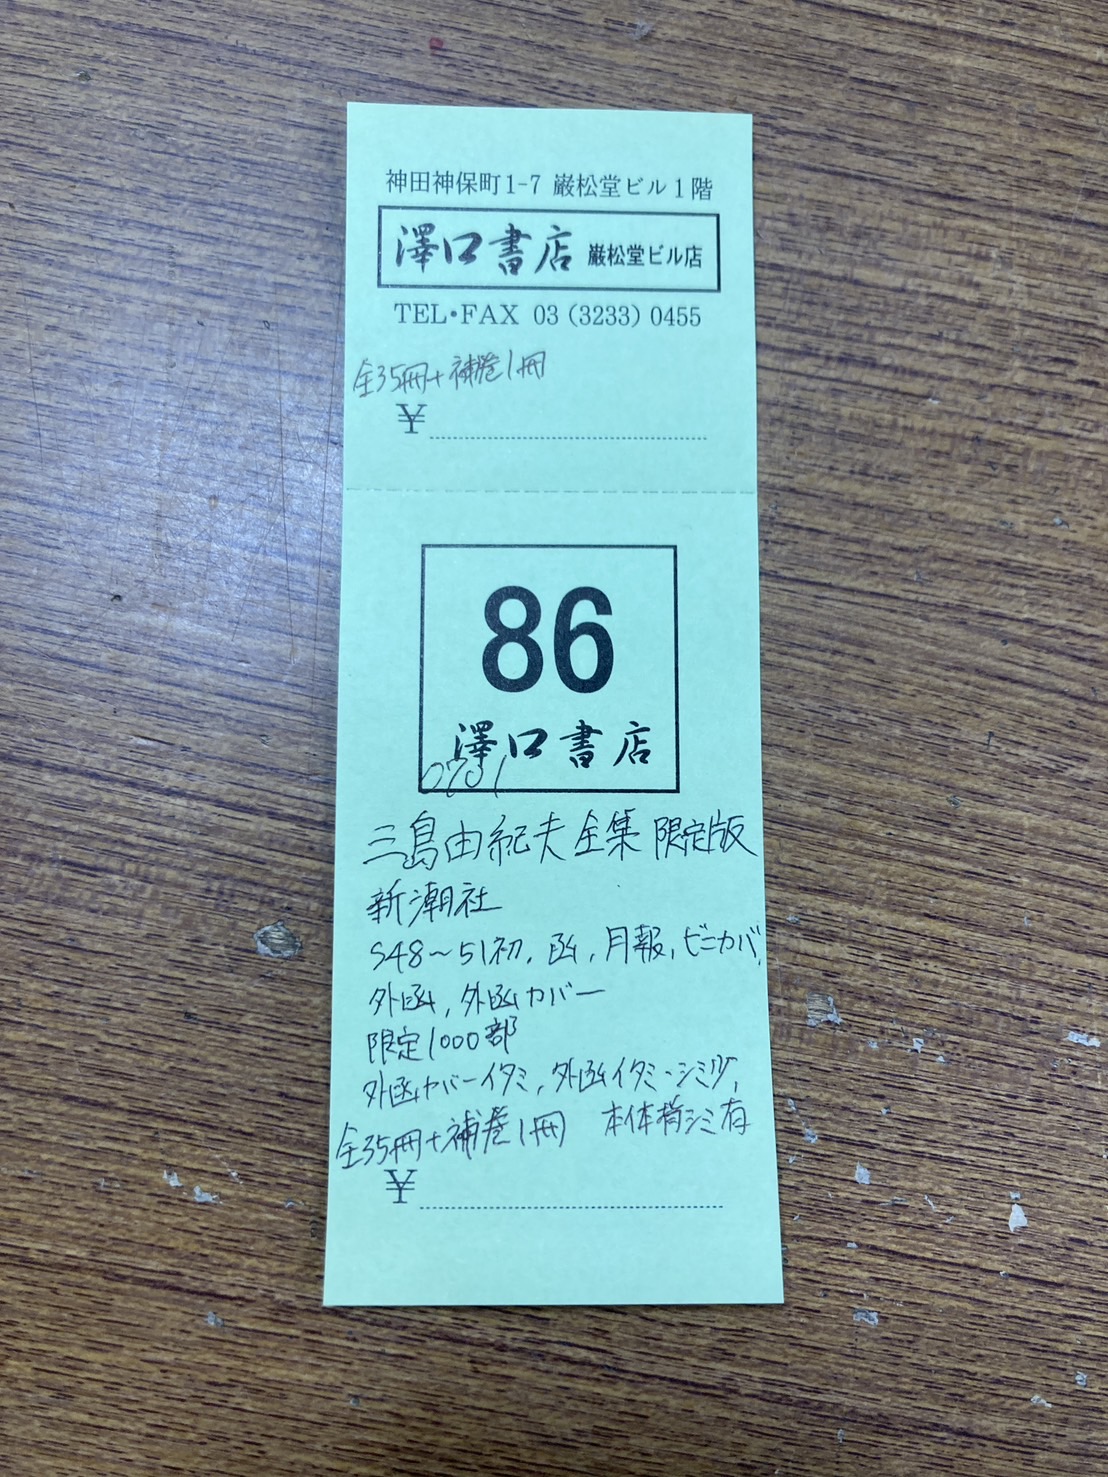 神田神保町1-7 巌松堂ビル1階
澤口書店 巌松堂ビル店
TEL・FAX 03(3233)0455
全35冊+補巻1冊
¥
86
澤口書店
0701
三島由紀夫全集 限定版
新潮社
S48～51初, 函, 月報, ビニカバ,
外函, 外函カバー
限定1000部
外函カバーイタミ, 外函イタミ・シミ少,
全35冊+補巻1冊 本体稍シミ有
¥